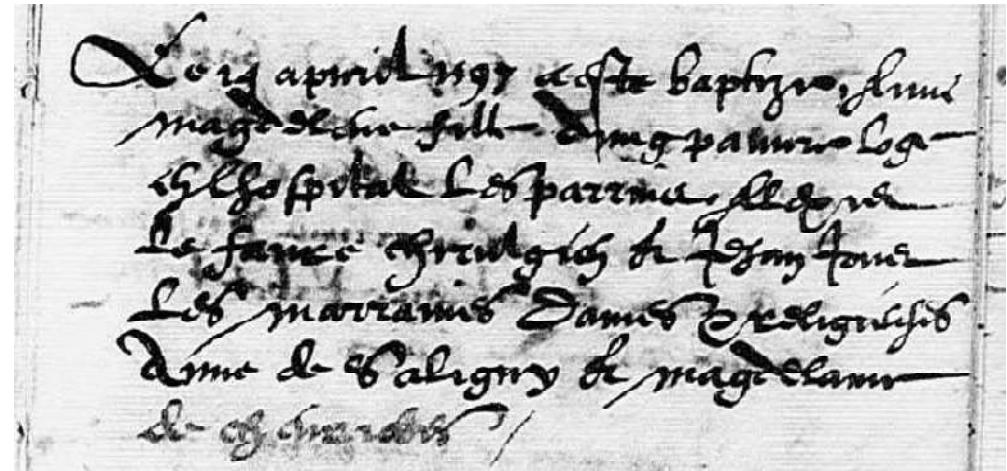 Le 19 apvril 1597 a este baptizee Anne
magdelene fille d'ung pauvre loge
en l'hospital Les parrins
le fauvre chirulgien & Jehan
Les marraines Dames & religieuses
Anne de Saligny & magdelaine
de